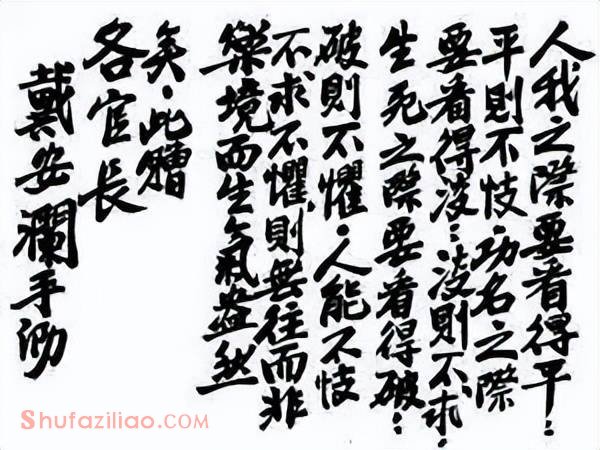 人我之際要看得平：
平則不忮．功名之際
要看得淡：淡則不求．
生死之際要看得破：
破則不懼．人能不忮
不求不懼，則無往而非
樂境而生氣盎然
矣．此贈
各官長
戴安瀾手泐
Shufaziliao.com